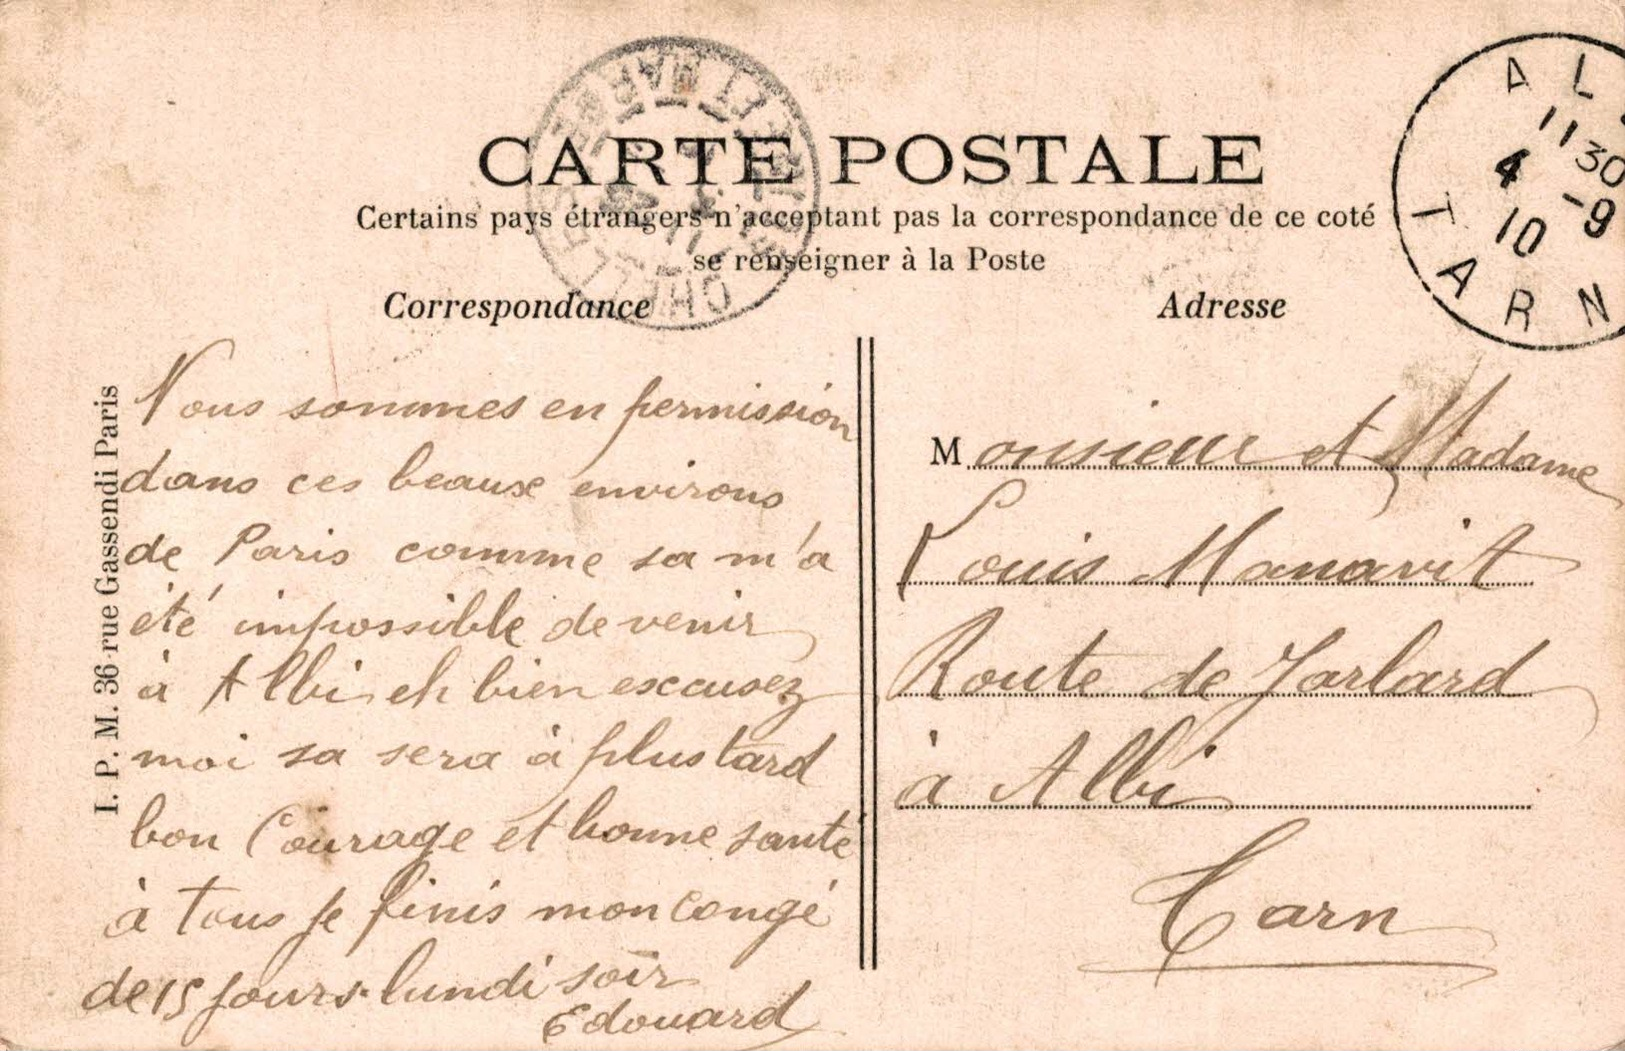 CARTE POSTALE
Certains pays étrangers n'acceptant pas la correspondance de ce coté
se renseigner à la Poste
Correspondance
Nous sommes en permission
dans ces beaux environs
de Paris comme sa m'a
été impossible de venir
à Albi eh bien excusez
moi sa sera à plus tard
bon Courage et bonne santé
à tous je finis mon congé
de 15 jours lundi soir
Edouard
Adresse
Monsieur et Madame
Louis Manavit
Route de Jarlard
à Albi
Tarn
I. P. M. 36 rue Gassendi Paris
AL
11 30
4 -9
10
TARN